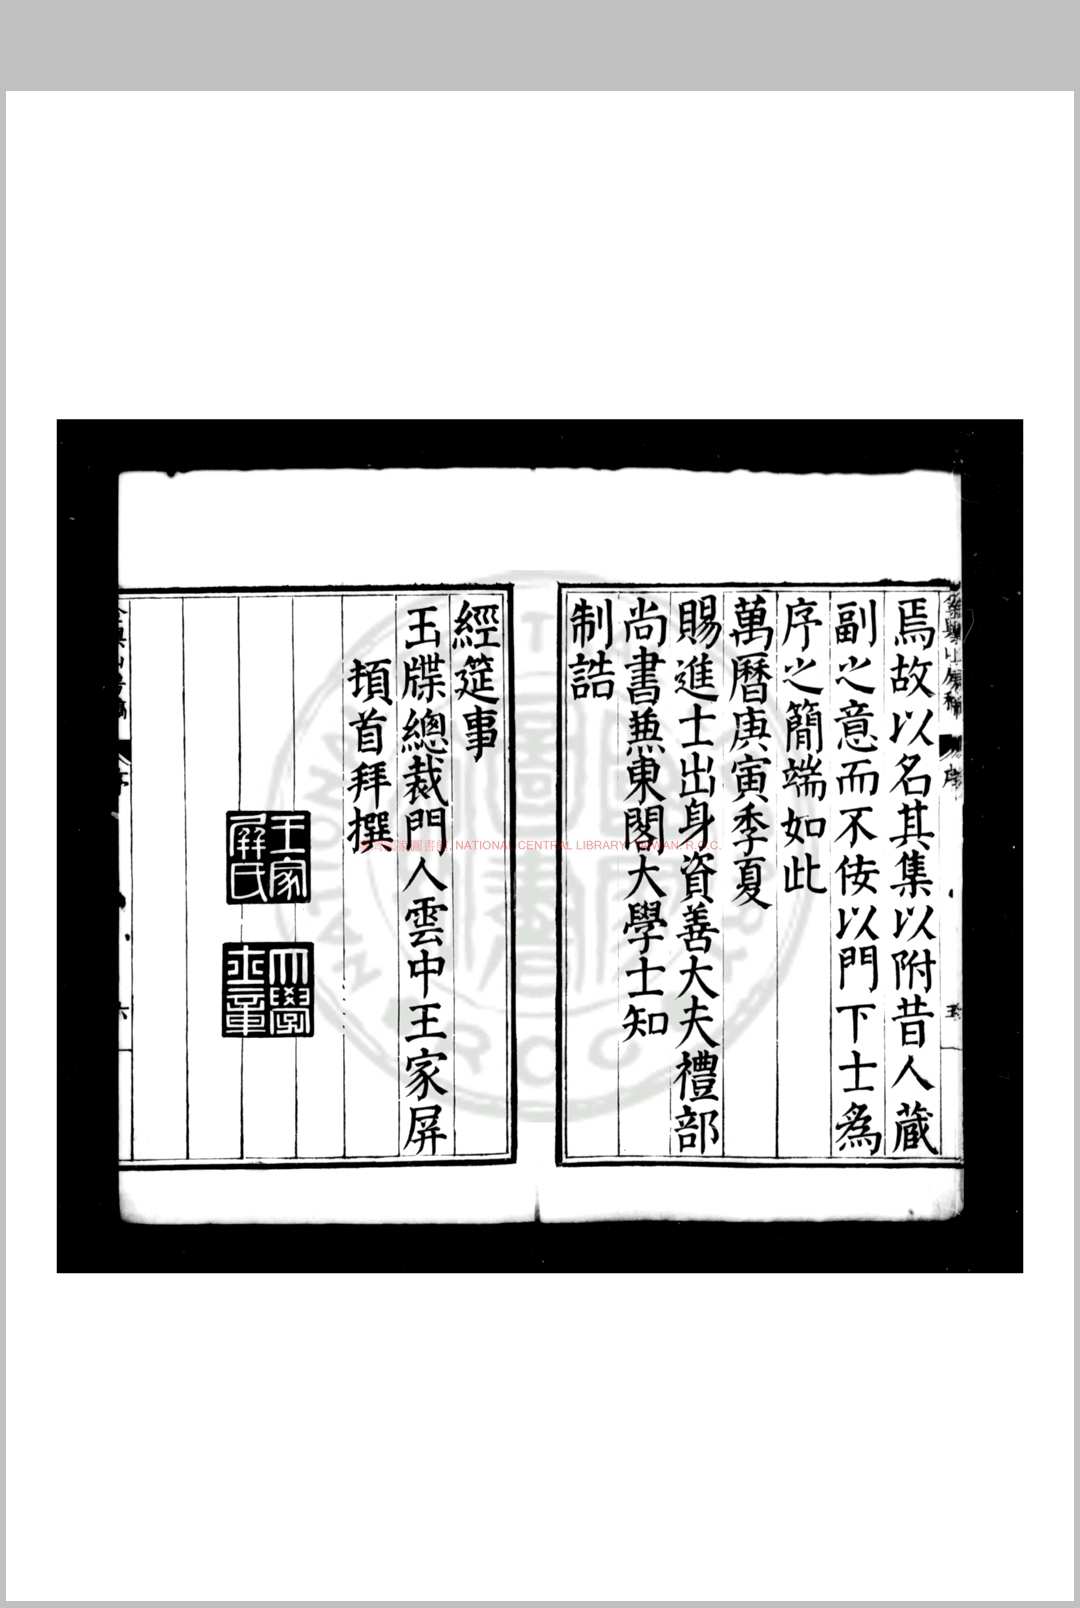 焉故以名其集以附昔人蔵
副之意而不佞以門下士為
序之簡端如此
萬曆庚寅季夏
賜進士出身資善大夫禮部
尚書兼東閣大學士知
制誥
經筵事
玉牒總裁門人雲中王家屏
頓首拜撰
王家屏氏
大學士章
國家圖書館, NATIONAL CENTRAL LIBRARY, TAIWAN, R.O.C.
序
六